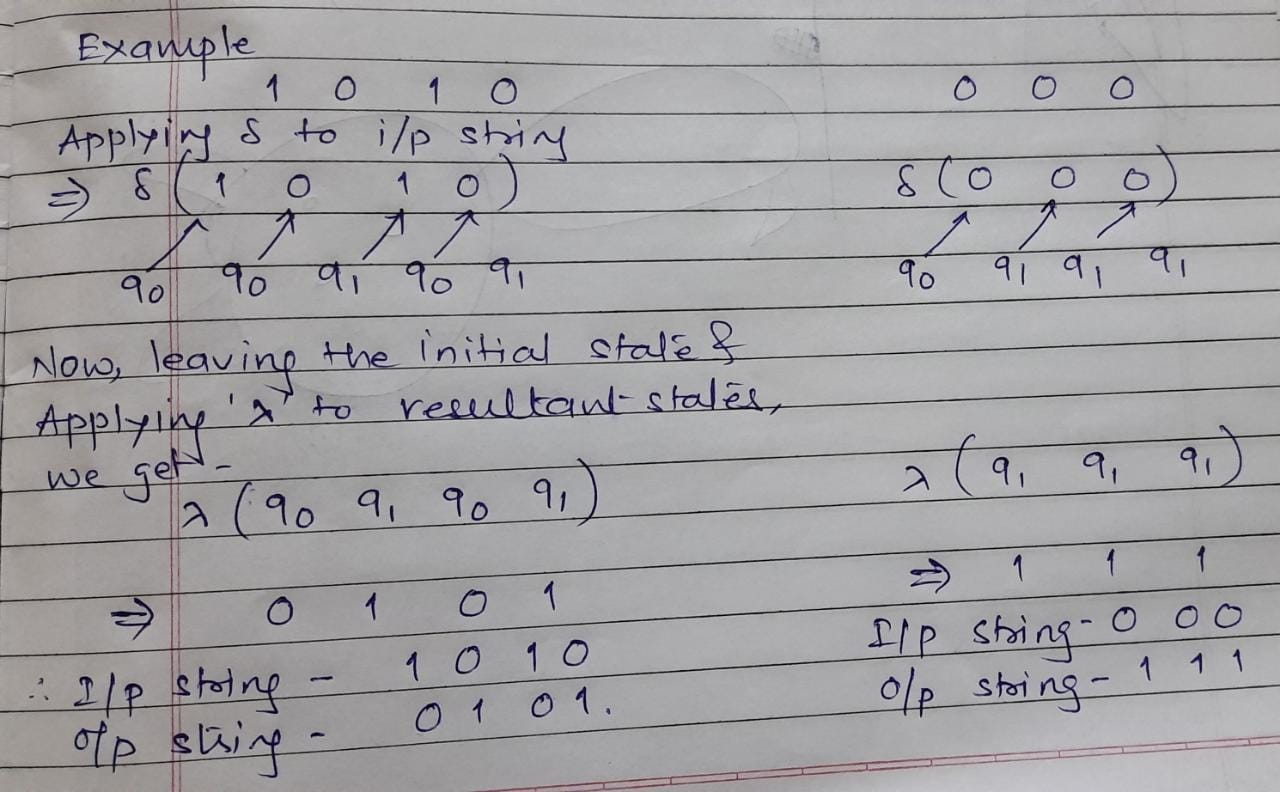 Example
1 0 1 0
Applying δ to i/p string
⇒ δ ( 1 0 1 0 )
q0 q0 q1 q0 q1
Now, leaving the initial state &
Applying 'λ' to resultant states,
we get -
λ ( q0 q1 q0 q1 )
⇒ 0 1 0 1
∴ I/p string - 1 0 1 0
o/p string - 0 1 0 1.
0 0 0
δ ( 0 0 0 )
q0 q1 q1 q1
λ ( q1 q1 q1 )
⇒ 1 1 1
I/p string - 0 0 0
o/p string - 1 1 1